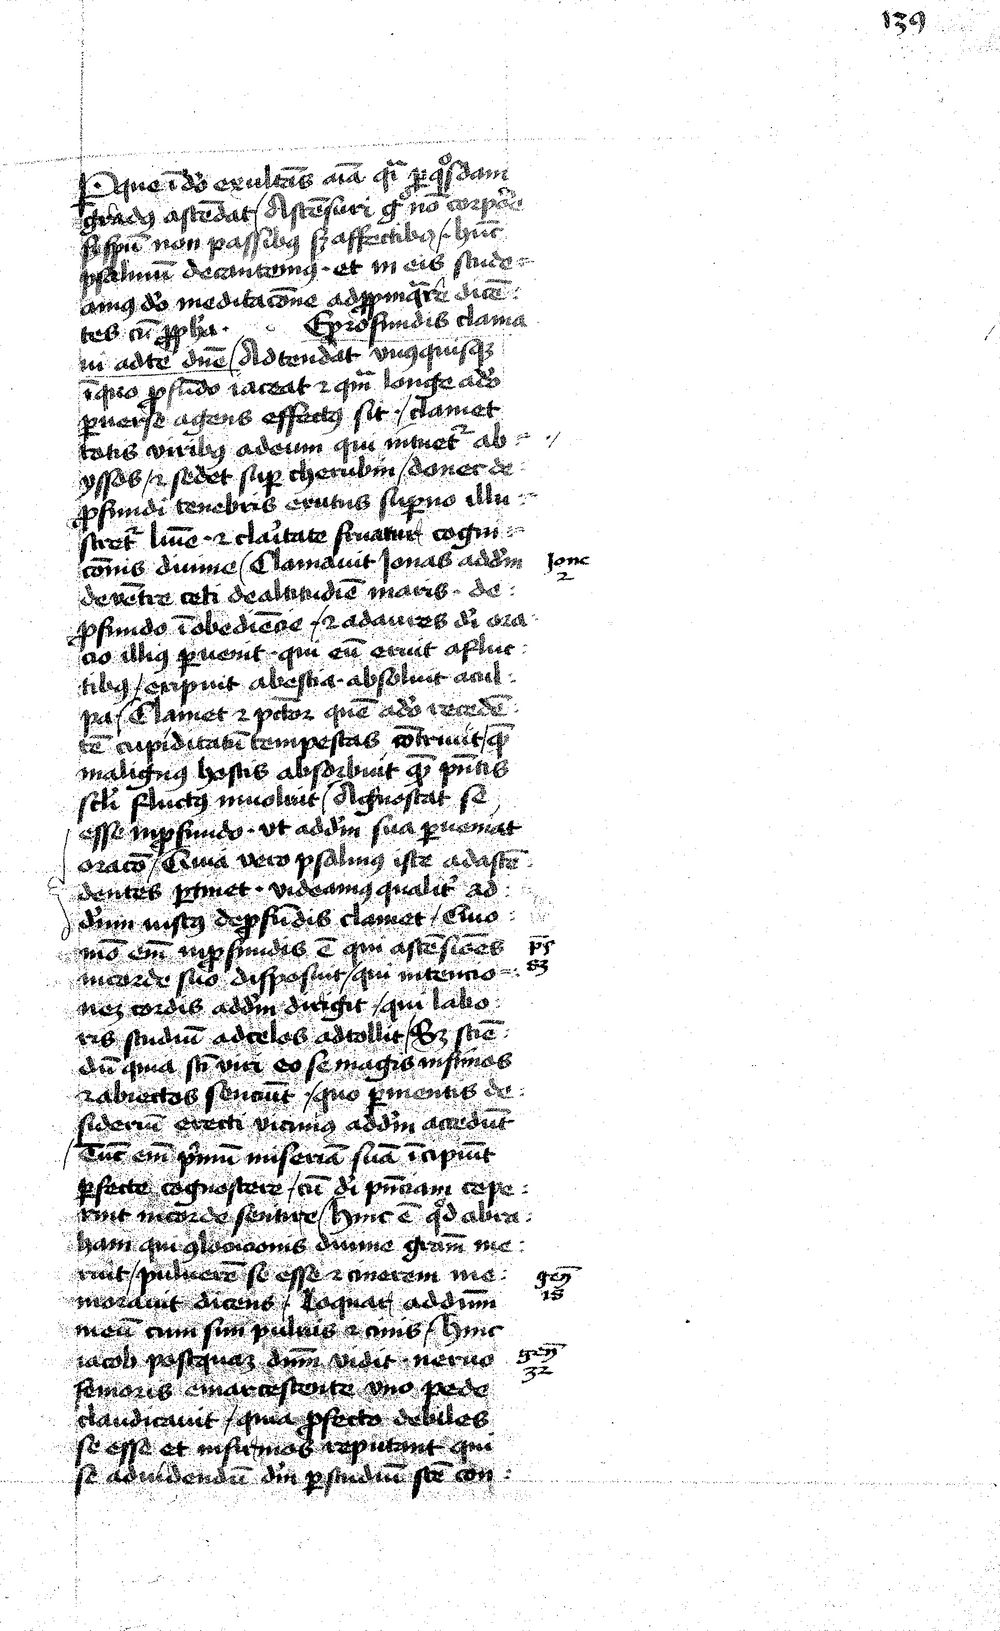 139
Pque ī dō exultās aīa q̄i p q̊sdam
gradꝰ ascēdat / Ascēsuri gͦ nō corpore
sꝫ spū non passibꝰ sꝫ affectibꝰ / hūc
psalmū decantemꝰ · et in eis stude
amꝰ dō meditacōne adppinq̄re dicē
tes cū ꝓpha · Eprofundis clama
ui ad te dn̄e / Adtendat vnꝰquisqꝫ
ī quo ꝓfūdo iaceat ⁊ qm̄ longe a dō
ꝑuerse agens effectꝰ sit / clamet
totis viribꝰ ad eum qui intuet᷑ ab
yssos / ⁊ sedet suꝑ cherubin / donec de
ꝓfundi tenebris erutus suꝑno illu
stret᷑ lumīe · ⁊ claritate fruatur cogni
cōnis diuine / Clamauit Jonas ad dn̄m
Jone
2
de vētre ceti de altitudīe maris · de
ꝓfundo īobediēcie / ⁊ ad aures dn̄i ora
cio illiꝰ ꝑuenit · qui eū eruit a fluc
tibꝰ / eripuit a bestia · absoluit a cul
pa / Clamet ⁊ pctor quē a dō recedē
tē cupiditatū tempestas cōtriuit / quē
malignꝰ hostis absorbuit quē pn̄tis
scl̄i fluctꝰ inuoluit / Agnoscat se
esse in ꝓfundo · vt ad dn̄m sua ꝑueniat
oracō / Quia vero psalmꝰ iste ad ascē
dentes ꝑtinet · videamꝰ qualit᷑ ad
dn̄m iustꝰ de ꝓfūdis clamet / Quo
mō em̄ in ꝓfundis ē qui ascēsiōes
ps
83
in corde suo disposuit / qui intencio
neꝫ cordis ad dn̄m dirigit / qui labo
ris studiū ad celos adtollit / Sꝫ sciē
dū quia sc̄i viri eo se magis infimos
⁊ abiectos senciūt / quo ꝑ mentis de
sideriū erecti viciniꝰ ad dn̄m accedūt
/ Tūc em̄ pͥmū miseriā suā īcipiūt
ꝑfecte cognoscere / cū dī pn̄ciam cepe
rint in corde sentire / Hinc ē qd̄ abra
ham qui ꝯlocucionis diuine gram̄ me
ruit / puluerē se esse ⁊ cinerem me
gen̄
18
morauit dicens / Loquar ad dnm̄
meū cum sim puluis ⁊ cinis / Hinc
iacob postquaꝫ dnm̄ vidit · neruo
gen̄
32
femoris emarcescente vno pede
claudicauit / quia ꝓfecto debiles
se esse et infirmos reputant qui
se ad videndū dn̄m ꝑ studiū sc̄e con